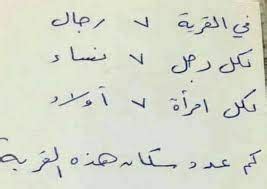 في القرية ٧ رجال
لكل رجل ٧ نساء
لكل امرأة ٧ أولاد
كم عدد سكان هذه القرية